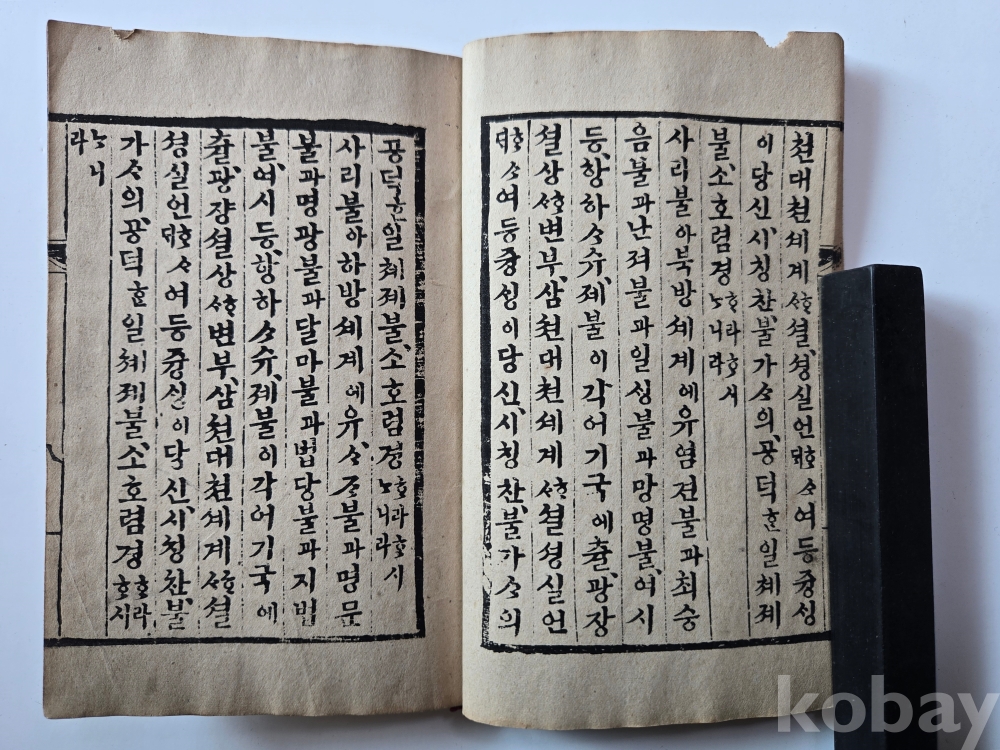 천대천셰계ᄒᆞ샤셜셩실언호ᄃᆡᄉᆞ여등즁셩
이당신시칭찬불가ᄉᆞ의공덕ᄒᆞᆫ일체제
불소호렴경ᄒᆞ라ᄒᆞ시ᄂᆞ니라
사리불아북방셰계에유염견불과최승
음불과난져불과일싱불과망명불여시
등항하ᄉᆞ슈졔불이각어기국에츌광장
셜상ᄒᆞ샤변부삼쳔대쳔셰계ᄒᆞ샤셜셩실언
호ᄃᆡᄉᆞ여등즁셩이당신시칭찬불가ᄉᆞ의
공덕ᄒᆞᆫ일체졔불소호렴경ᄒᆞ라ᄒᆞ시ᄂᆞ니라
사리불아하방셰계에유ᄉᆞᄌᆞ불과명문
불과명광불과달마불과법당불과지법
불여시등항하ᄉᆞ슈졔불이각어기국에
츌광쟝셜상ᄒᆞ샤변부삼쳔대쳔셰계ᄒᆞ샤셜
셩실언호ᄃᆡᄉᆞ여등즁싱이당신시칭찬불
가ᄉᆞ의공덕ᄒᆞᆫ일체졔불소호렴경ᄒᆞ라ᄒᆞ시
ᄂᆞ니라
kobay